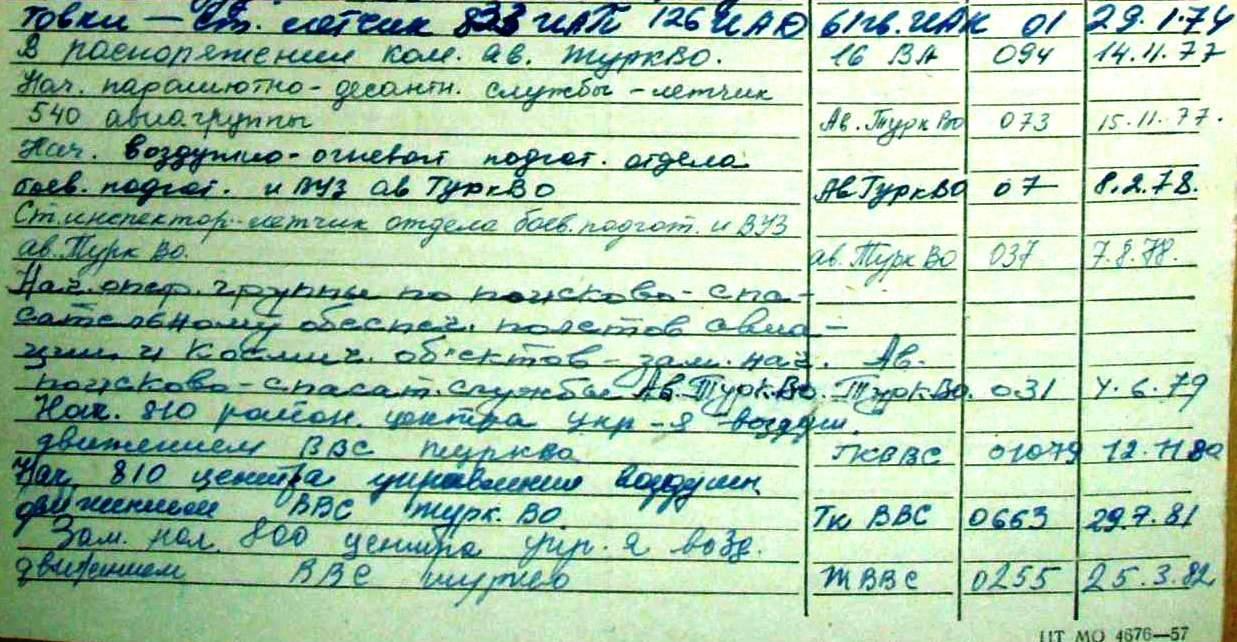 товки – Ст. летчик 833 ИАП 126 ИАД 61 гв. ИАК 01 29.1.74
В распоряжении ком. ав. ТуркВО. 16 ВА 094 14.11.77
Нач. парашютно-десантн. службы – летчик
540 авиагруппы Ав. ТуркВО 073 15.11.77.
Нач. воздушно-огневой подгот. отдела
боев. подгот. и ВУЗ ав ТуркВО Ав ТуркВО 07 8.2.78.
Ст. инспектор-летчик отдела боев. подгот. и ВУЗ
ав. Турк ВО. ав. Турк ВО 037 7.8.78.
Нач. опер. группы по поисково-спа-
сательному обеспеч. полетов авиа-
ции и Космич. объектов – зам. нач. Ав.
поисково-спасат. службы Ав. ТуркВО. ТуркВО. 031 4.6.79
Нач. 810 район. центра упр-я воздуш.
движением ВВС туркво ГКВВС 01079 12.11 80
Нач. 810 центра управления воздушн.
движением ВВС Турк. ВО. Гк ВВС 0663 29.7.81
Зам. нач. 800 центра упр. я возд.
движением ВВС туркво ВВС 0255 25.3.82
ЦТ МО 4676—57